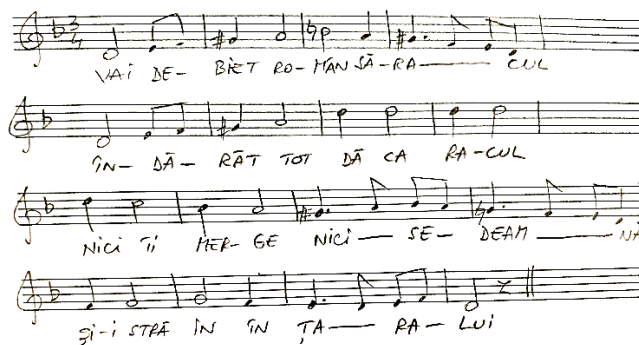 VAI DE- BIET RO-MAN SĂ-RA- CUL
ÎN- DĂ- RĂT TOT DĂ CA RA-CUL
NICI TI MER- GE NICI SE- DEAM NA
ȘI-I STRĂ IN IN ȚA- RA- LUI